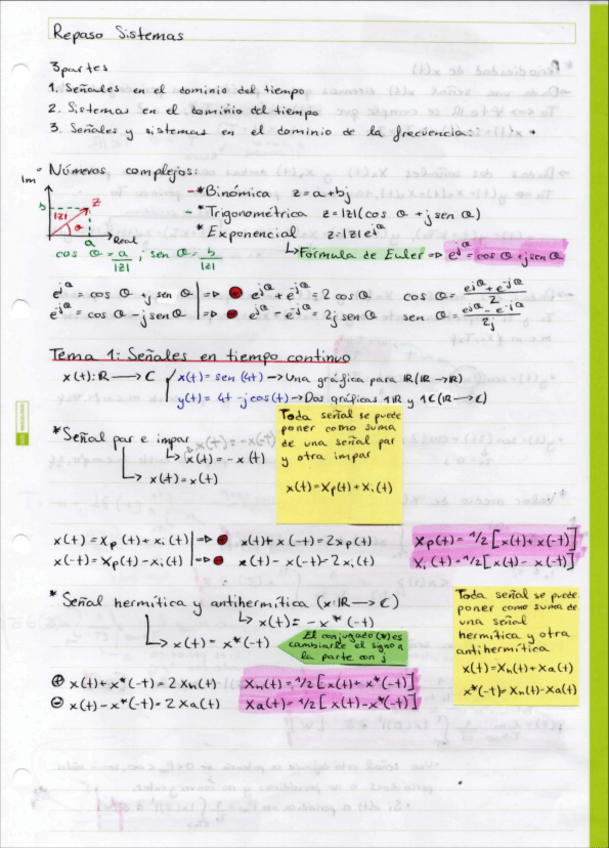 Repaso Sistemas
3 partes
1. Señales en el dominio del tiempo
2. Sistemas en el dominio del tiempo
3. Señales y sistemas en el dominio de la frecuencia
* Números complejos:
Im
b
|z|
z
θ
a
Real
cos θ = a/|z| ; sen θ = b/|z|
* Binómica z = a + bj
* Trigonométrica z = |z|(cos θ + j sen θ)
* Exponencial z = |z|e^jθ
↳ Fórmula de Euler => e^jθ = cos θ + j sen θ
e^jθ = cos θ + j sen θ | => + e^jθ + e^-jθ = 2 cos θ cos θ = (e^jθ + e^-jθ)/2
e^-jθ = cos θ - j sen θ | => - e^jθ - e^-jθ = 2j sen θ sen θ = (e^jθ - e^-jθ)/2j
Tema 1: Señales en tiempo continuo
x(t): ℝ → ℂ
x(t) = sen(4t) → Una gráfica para ℝ (ℝ → ℝ)
y(t) = 4t - j cos(t) → Dos gráficas 1ℝ y 1ℂ (ℝ → ℂ)
* Señal par e impar
↳ x(t) = -x(t)
↳ x(t) = x(t)
Toda señal se puede
poner como suma
de una señal par
y otra impar
x(t) = Xp(t) + Xi(t)
x(t) = Xp(t) + xi(t) | => + x(t) + x(-t) = 2xp(t)
x(-t) = Xp(t) - xi(t) | => - x(t) - x(-t) = 2xi(t)
Xp(t) = 1/2 [x(t) + x(-t)]
Xi(t) = 1/2 [x(t) - x(-t)]
* Señal hermítica y antihermítica (x: ℝ → ℂ)
↳ x(t) = -x*(-t)
↳ x(t) = x*(-t)
El conjugado (*) es
cambiarle el signo a
la parte con j
Toda señal se puede
poner como suma de
una señal
hermítica y otra
antihermítica
x(t) = Xh(t) + Xa(t)
x*(-t) = Xh(t) - Xa(t)
⊕ x(t) + x*(-t) = 2Xh(t) Xh(t) = 1/2 [x(t) + x*(-t)]
⊖ x(t) - x*(-t) = 2Xa(t) Xa(t) = 1/2 [x(t) - x*(-t)]